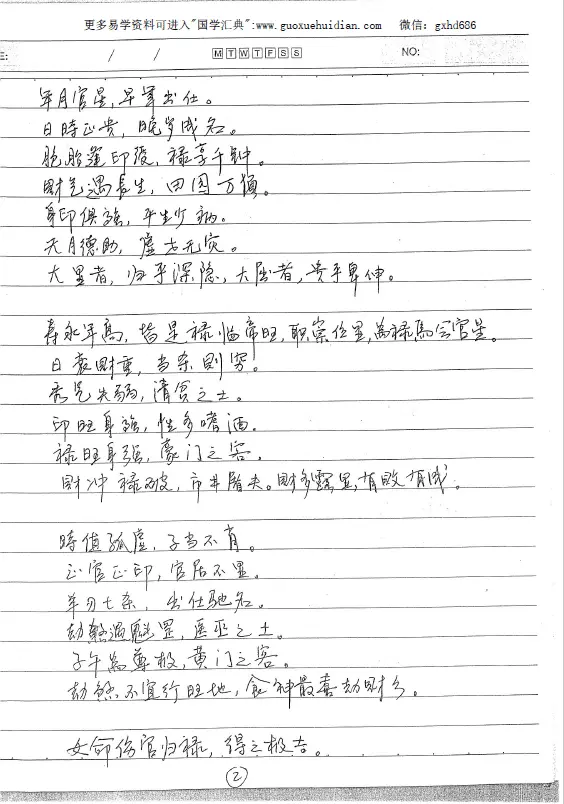 更多易学资料可进入"国学汇典":www.guoxuehuidian.com 微信：gxhd686
/ / M T W T F S S NO:
年月官星，早年出仕。
日時正贵，晚岁成名。
胞胎逢印绶，禄享千钟。
財气遇長生，田园万傾。
身印俱強，平生少病。
天月德助，處世无灾。
大显者，归乎深隐，大屈者，贵乎卑伸。
寿永年高，皆是禄临帝旺，職崇位显，為禄馬会官星。
日衰財重，当杀則穷。
秀气失弱，清贫之士。
印旺身強，性多嗜酒。
禄旺身强，豪门之客。
財冲禄破，市井屠夫。財多露显，有败有成。
時值孤虚，子当不肖。
正官正印，官居不显。
羊刃七杀，出仕馳名。
劫煞遇魁罡，医巫之士。
子午為尊极，黄门之客。
劫煞不宜行旺地，食神最喜劫財乡。
女命伤官归禄，得之极吉。
2